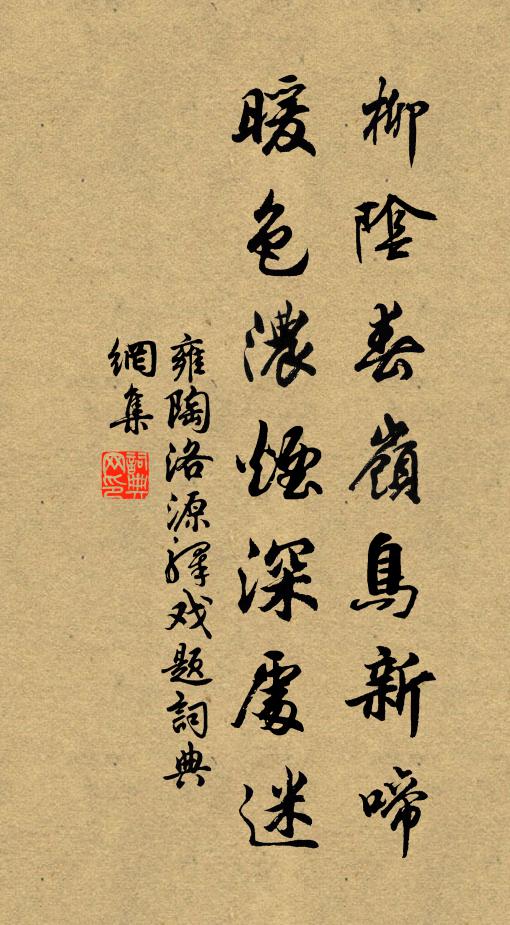 柳陰春嶺鳥新啼
暖色濃煙深處迷
雍陶洛源驛戏题詞典
網集
詞典網印